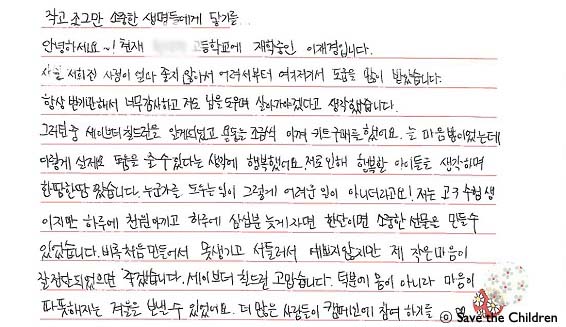 작고 조그만 소중한 생명들에게 닿기를..
안녕하세요~! 현재 고등학교에 재학중인 이재경입니다.
사실 저희집 사정이 썩 좋지 않아서 어려서부터 여기저기서 도움을 많이 받았습니다.
항상 받기만해서 너무감사하고 저도 남을도우며 살아가야겠다고 생각했습니다.
그러던중 세이브더칠드런을 알게되었고 용돈을 조금씩 아껴 키트구매를 했어요. 늘 마음뿐이었는데
이렇게 실제로 도움을 줄수있다는 생각에 행복했어요. 저로인해 행복할 아이들을 생각하며
한땀한땀 떴습니다. 누군가를 도우는일이 그렇게 어려운 일이 아니더라고요! 저는 고3 수험생
이지만 하루에 천원아끼고 하루에 삼십분 늦게자면 한달이면 소중한 선물을 만들수
있었습니다. 비록 처음 만들어서 못생기고 서툴러서 예쁘지않지만 제 작은마음이
잘전달되었으면 좋겠습니다. 세이브더 칠드런 고맙습니다. 덕분에 몸이 아니라 마음이
따뜻해지는 겨울을 보낼수 있었어요. 더 많은 사람들이 캠페인에 참여 하기를
ⓒ Save the Children